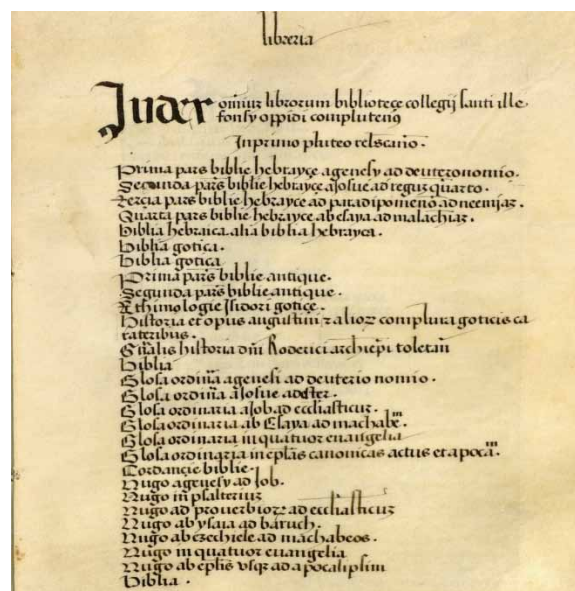 libreria
Index omniũ librorum biblioteçe collegij santi ille
fonsy oppidi complutenẹ
In primo pluteo
Prima pars biblie hebrayçe agenesy ad deuteronomio.
Secunda pars biblie hebrayçe a Josue ad reguz quarto.
tercia pars biblie hebrayce ad paradipomenõ ad neemiaz.
Quarta pars biblie hebrayce ab esaya ad malachiaz.
biblia hebraica alia biblia hebrayca.
biblia gotica.
biblia gotica
Prima pars biblie antique.
Segunda pars biblie antique.
Ethimologie Isidori gotiçe.
historia et opus augustini z alioz complura goticis ca
rateribus.
Gñalis historia dñi Roderici archiepi toletani
biblia
Glosa ordinãa agenesi ad deuterio nomio.
Glosa ordiñia a Josue ad ester.
Glosa ordinaria a Job ad eccliasticuz.
Glosa ordinaria ab Esaya ad machabeᵐ.
Glosa ordinaria in quatuor euangelia
Glosa ordinaria in eplãs canonicas actus et apocãᵐ.
Cordançie biblie.
Nugo agenesy ad Job.
Nugo in psalteriuz
Nugo ad prouerbioz ad eccliasticuz
Nugo ab ysaia ad baruch.
Nugo ab ezechiele ad machabeos.
Nugo in quatuor euangelia
Nugo ab eplis vsqz ad apocalipsim
biblia.